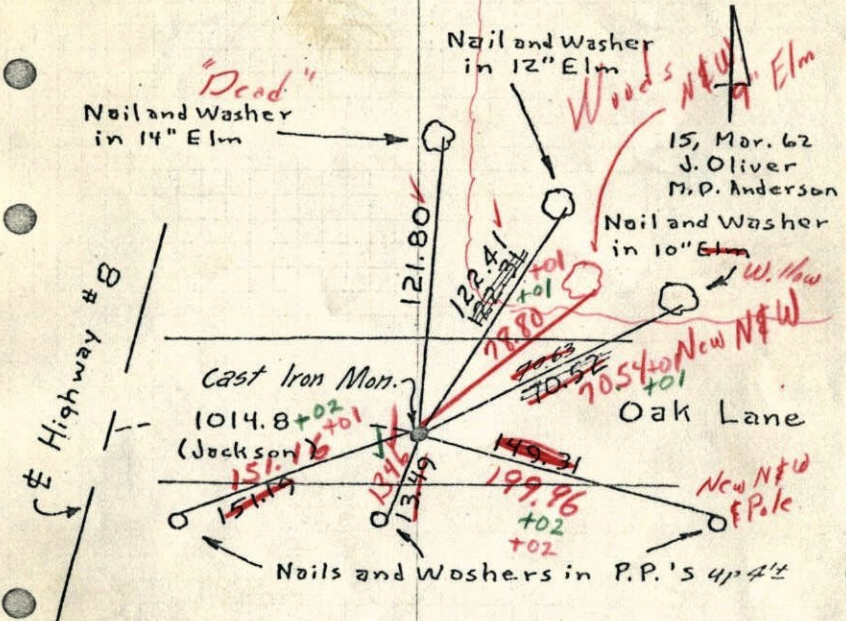 "Dead"
Nail and Washer
in 14" Elm
Nail and Washer
in 12" Elm
Woods
N&W
9" Elm
15, Mar. 62
J. Oliver
M.D. Anderson
Nail and Washer
in 10" Elm
Willow
121.80
122.41
+01
+01
78.80
70.63
70.52
70.54 +01
+01
New N&W
℄ Highway #8
Cast Iron Mon.
1014.8 +02
(Jackson)
+01
151.16
151.19
1346
13.49
149.31
199.96
+02
+02
Oak Lane
New N&W
& Pole
Nails and Washers in P.P.'s up 4'±